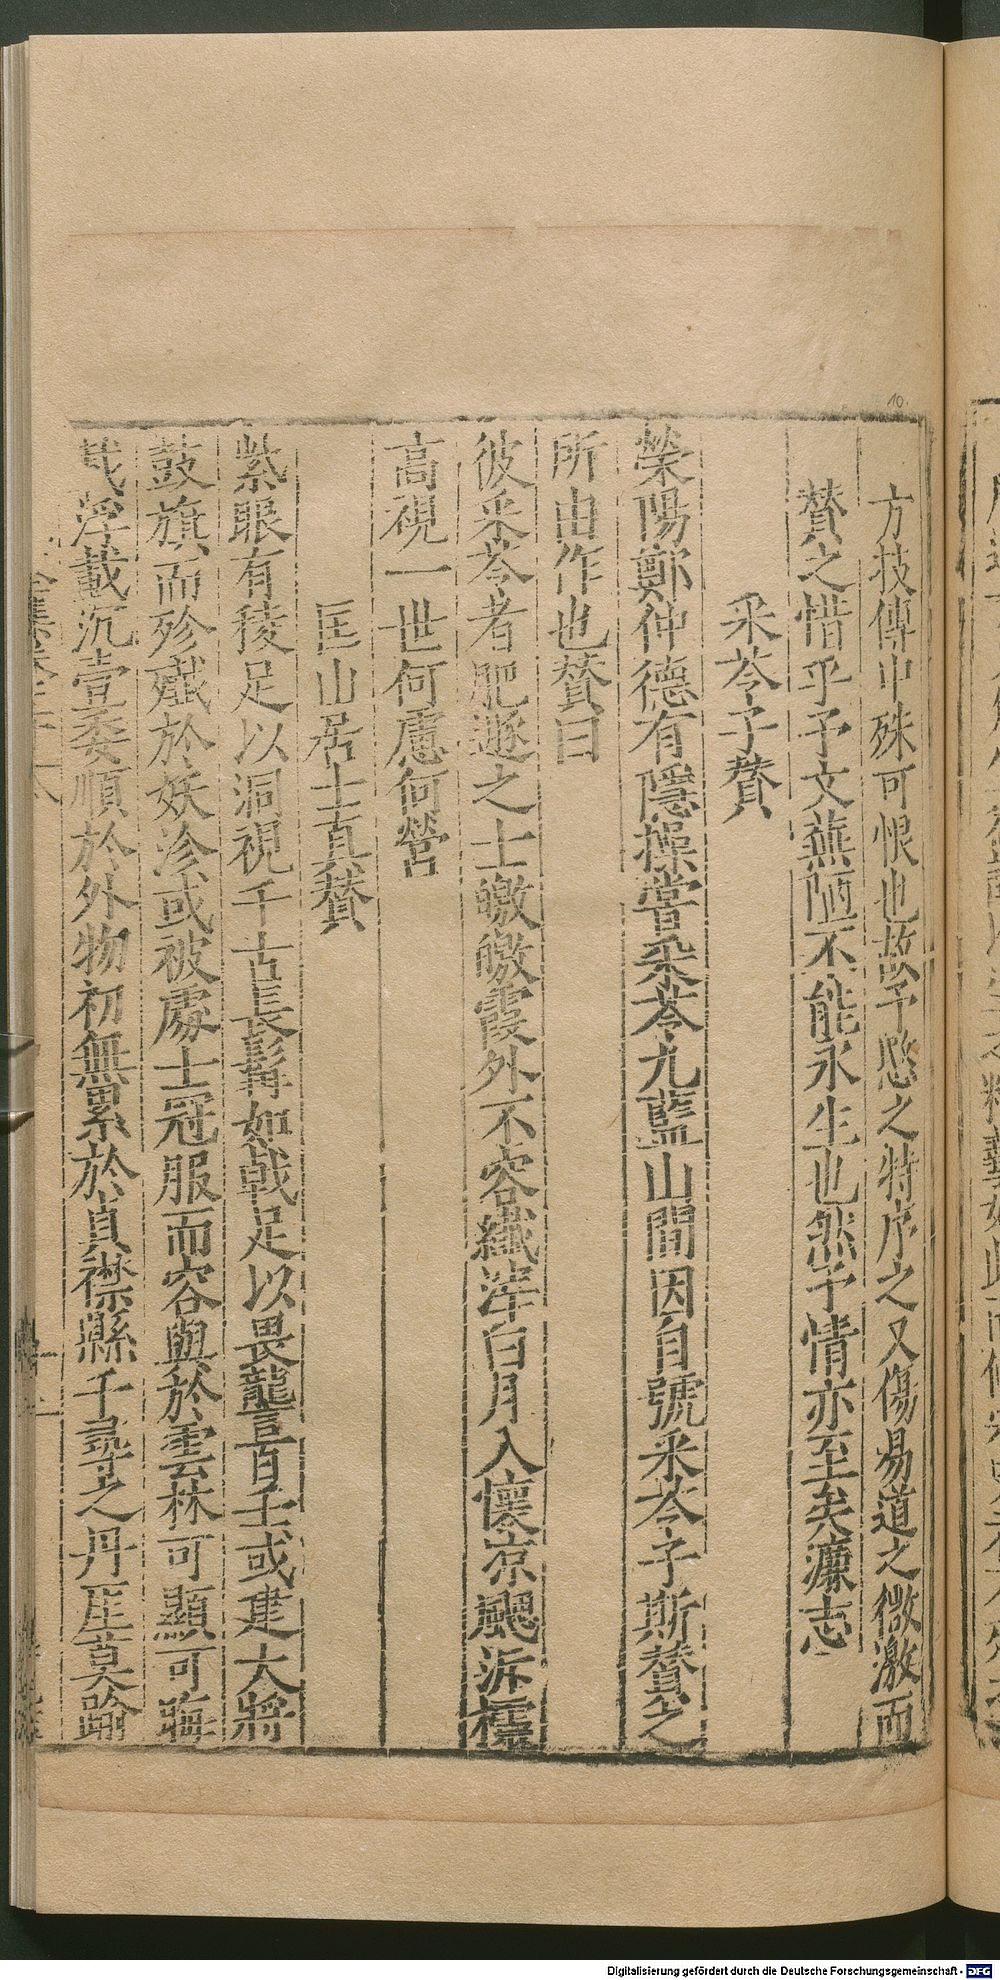 方技傳中殊可恨也故予愍之特序之又傷易道之微激而
贊之惜乎予文蕪陋不能永生也然予情亦至矣濂志
采苓子贊
滎陽鄭仲德有隱操嘗采苓尢藍山間因自號采苓子斯贊之
所由作也贊曰
彼采苓者肥遯之士皦皦霞外不容纖滓白月入懷凉颸泝襟
高視一世何慮何營
匡山居士真贊
紫眼有稜足以洞視千古長髯如戟足以畏讋百壬或建大將
鼓旗而殄殱於妖沴或被處士冠服而容與於雲林可顯可晦
載浮載沉壹委順於外物初無累於貞襟縣千尋之丹厓莫踰
10
Digitalisierung gefördert durch die Deutsche Forschungsgemeinschaft - DFG